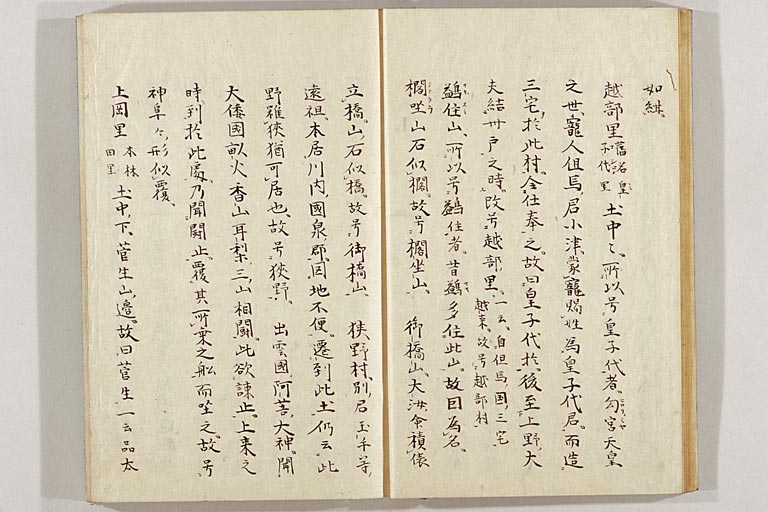 如緋
越部里 舊名皇子代里 土中々 所以号皇子代者 勾宮天皇
之世 寵人但馬君小津 蒙寵賜姓 為皇子代君 而造
三宅於此村 令仕奉之 故曰皇子代 於後至上野大
夫結卅戸之時 改号越部里 一云 自但馬国三宅越来 故号越部村
鷁住山 所以号鷁住者 昔鷁多住此山 故因為名
櫚坐山 石似櫚 故号櫚坐山 御橋山 大汝命積俵
立橋 山石似橋 故号御橋山 狹野村 別君玉手等
遠祖 本居川内國泉郡 因地不便 遷到此土 仍云 此
野雖狹 猶可居也 故号狹野 出雲國阿菩大神 聞
大倭国畝火香山耳梨三山相闘 此欲諫止 上来之
時 到於此處 乃聞闘止 覆其所乗之舩而坐之 故号
神阜々形似覆
上岡里 本林田里 土中下 菅生山邊 故曰菅生 一云 品太